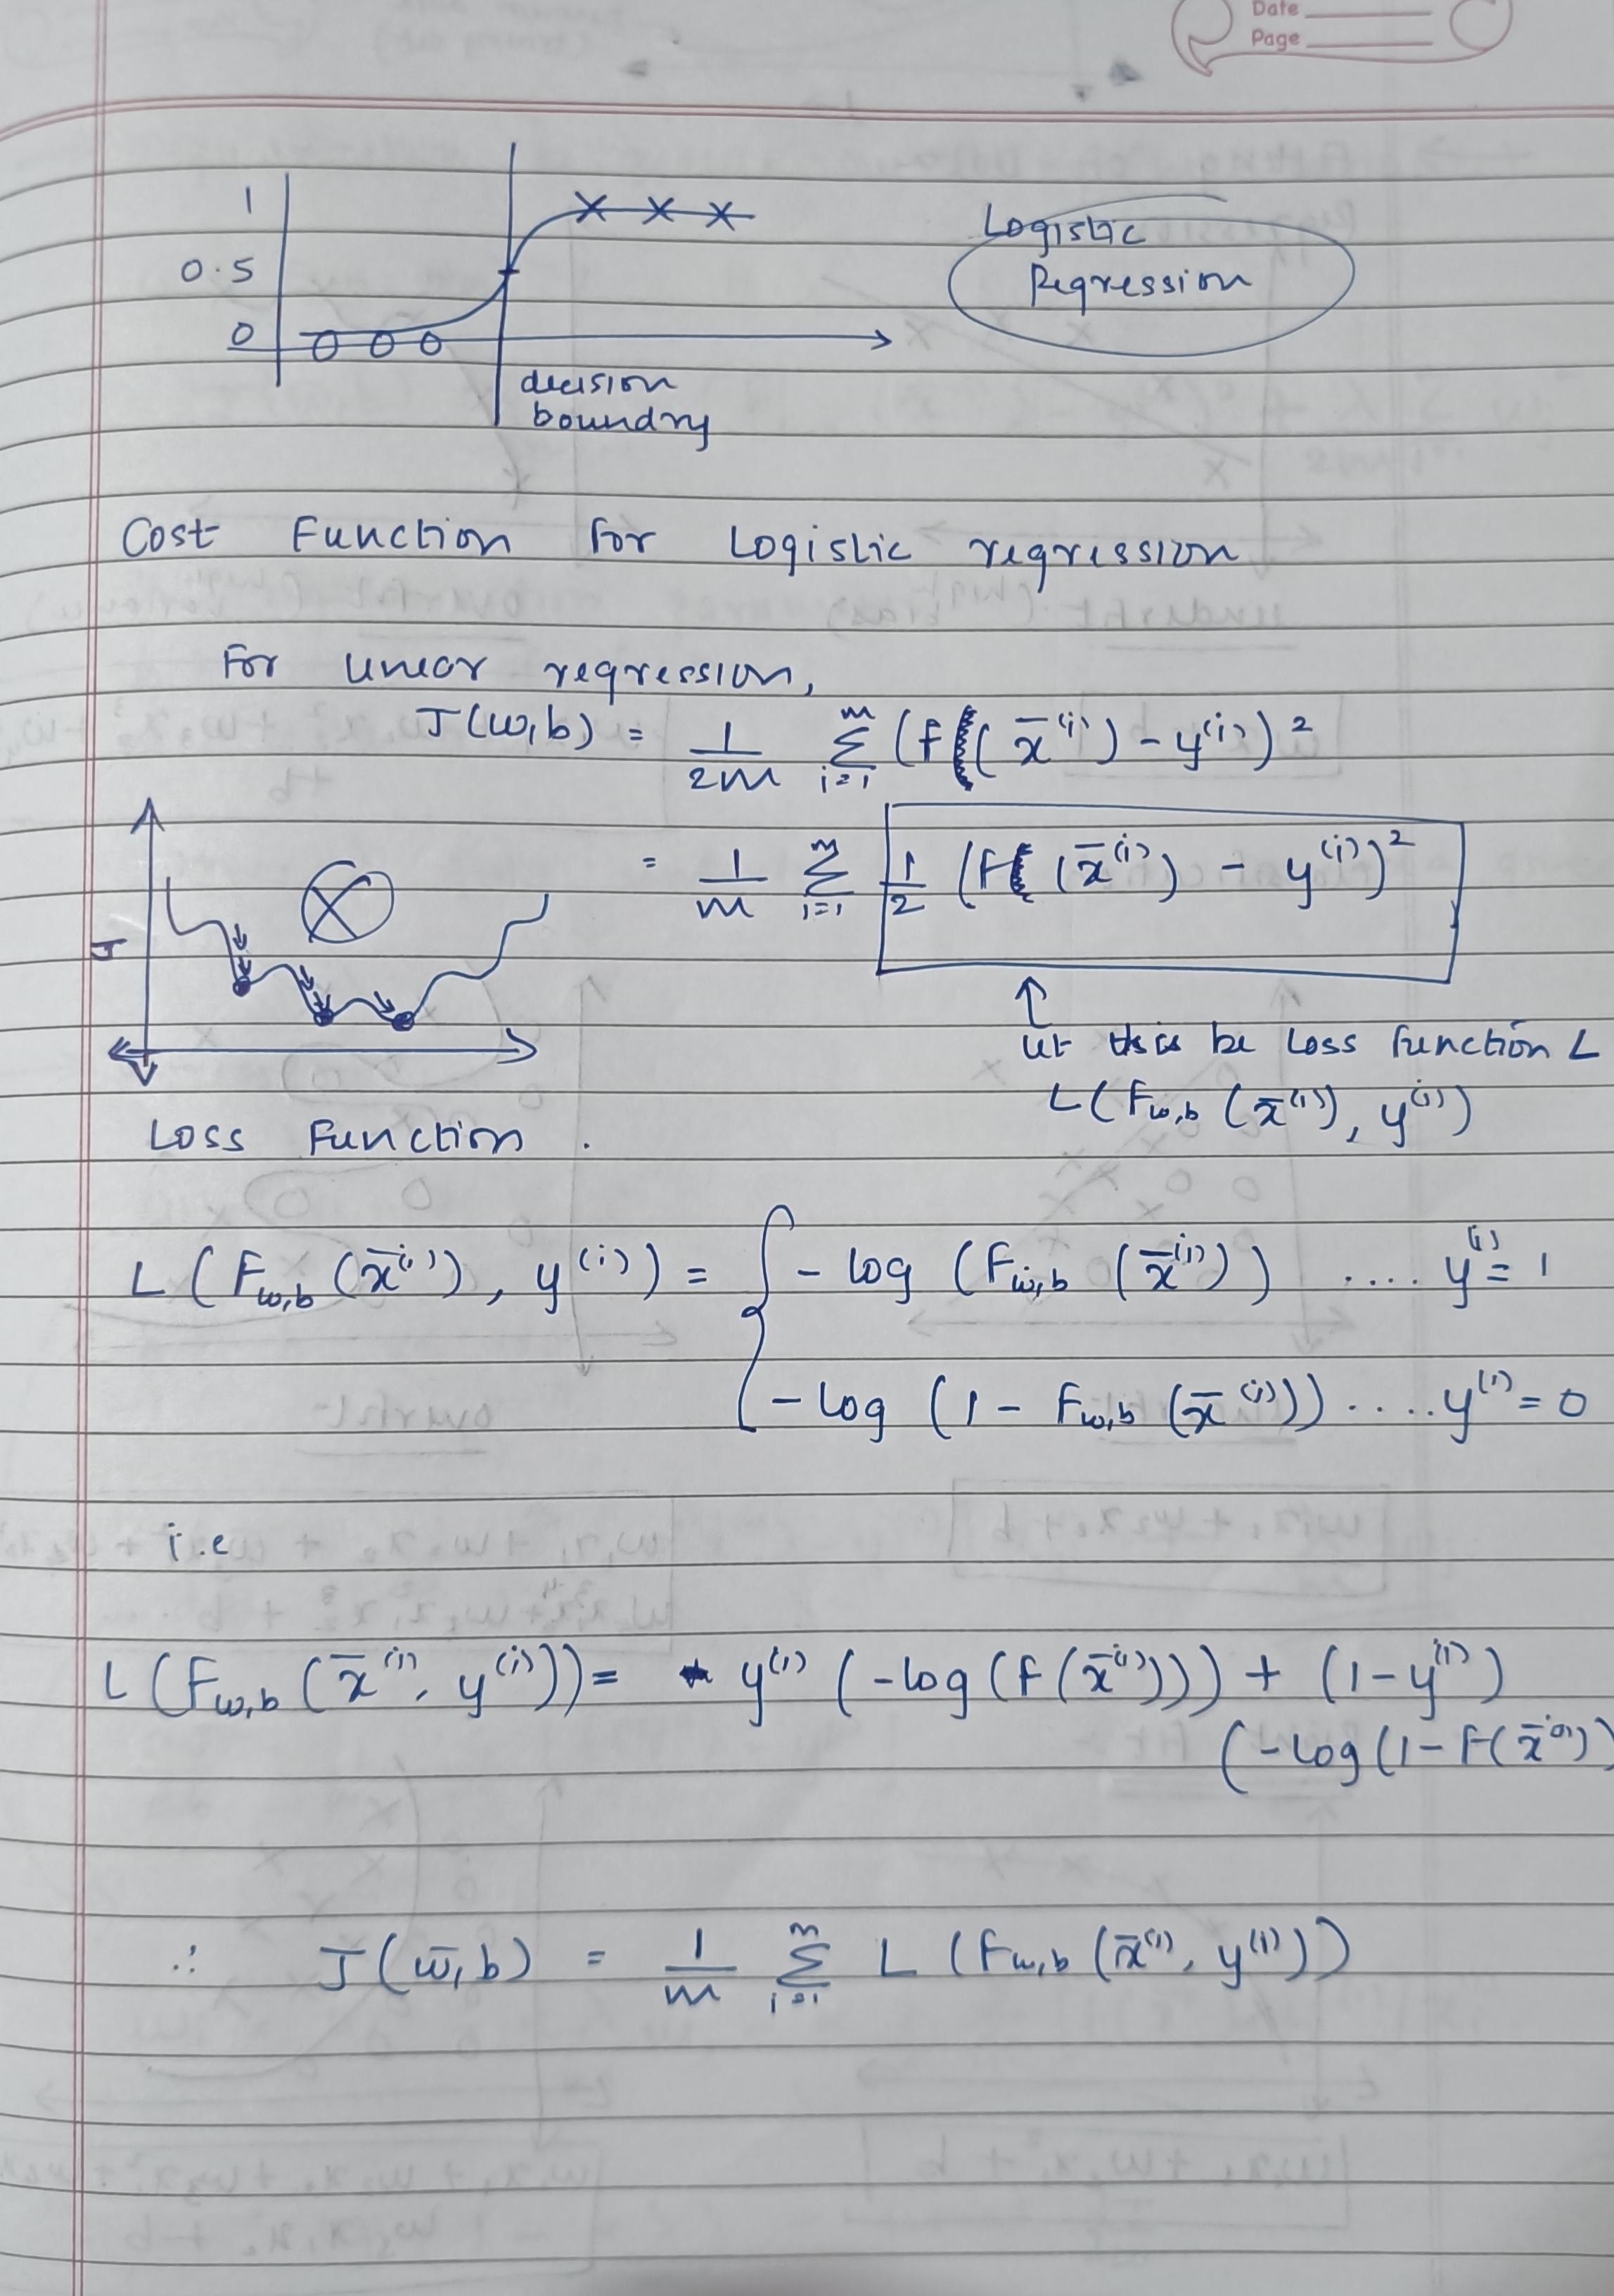 Date
Page
1
0.5
0
decision
boundry
Logistic
Regression
Cost Function for Logistic regression
For linear regression,
J(w,b) = 1/2m Σ_{i=1}^{m} (f(x̄^(i)) - y^(i))²
= 1/m Σ_{i=1}^{m} 1/2 (f(x̄^(i)) - y^(i))²
J
let this be Loss function L
L(F_{w,b}(x̄^(i)), y^(i))
Loss Function .
L(F_{w,b}(x̄^(i)), y^(i)) = { - log (F_{w,b}(x̄^(i))) .... y^(i) = 1
- log (1 - F_{w,b}(x̄^(i))) .... y^(i) = 0
i.e
L(F_{w,b}(x̄^(i), y^(i))) = y^(i) (-log(f(x̄^(i)))) + (1-y^(i))
(-log(1-F(x̄^(i)))
∴ J(w̄,b) = 1/m Σ_{i=1}^{m} L (F_{w,b}(x̄^(i), y^(i)))